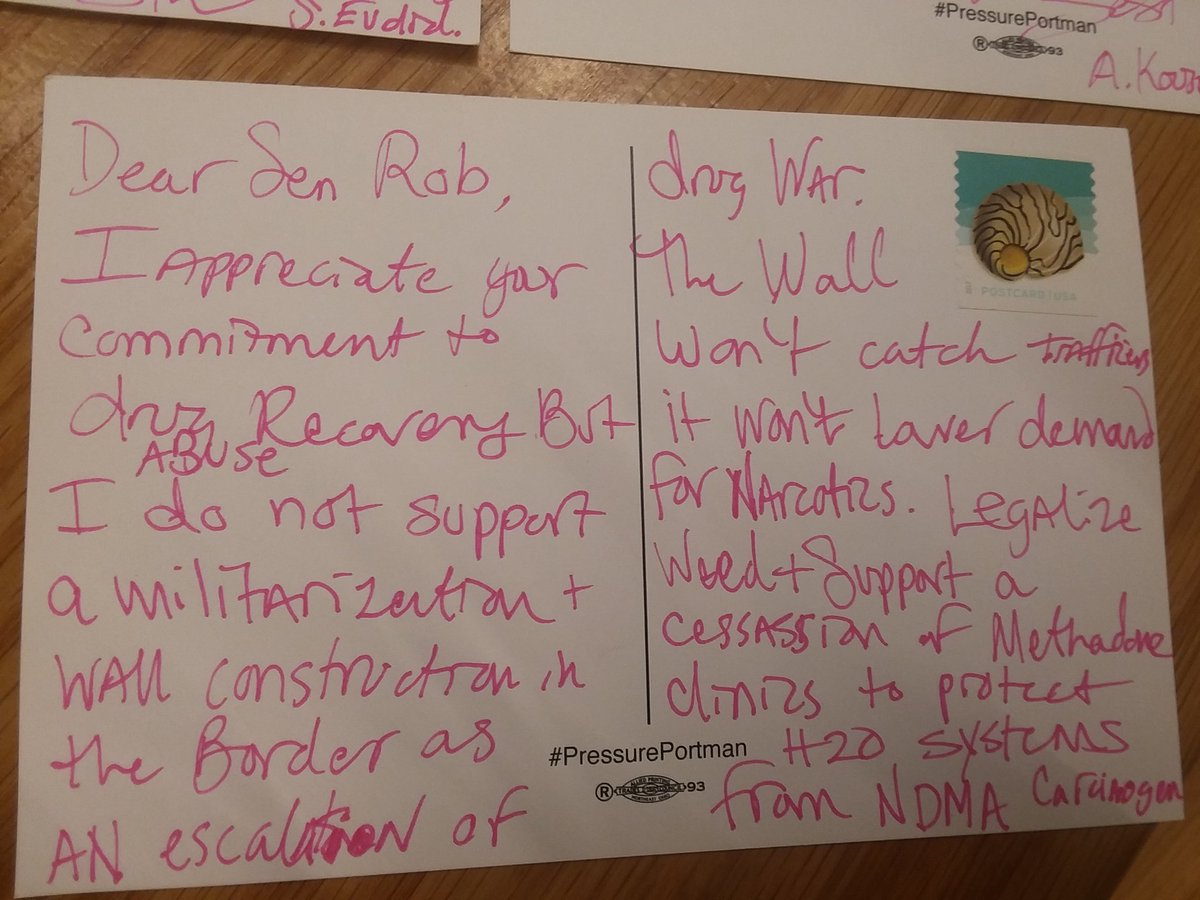 S. Eudid.
#PressurePortman
93
A. Kous
Dear Sen Rob,
I Appreciate your
commitment to
drug Recovery But
ABUSE
I do not support
a militarization +
WAll construction in
the Border as
AN escalation of
drug WAr.
The Wall
won't catch traffickers
it won't Lower demand
for NArcotics. LegAlize
Weed + Support a
cessAssion of Methadone
clinics to protect
H20 systems
from NDMA Carcinogen
POSTCARD | USA
#PressurePortman
93